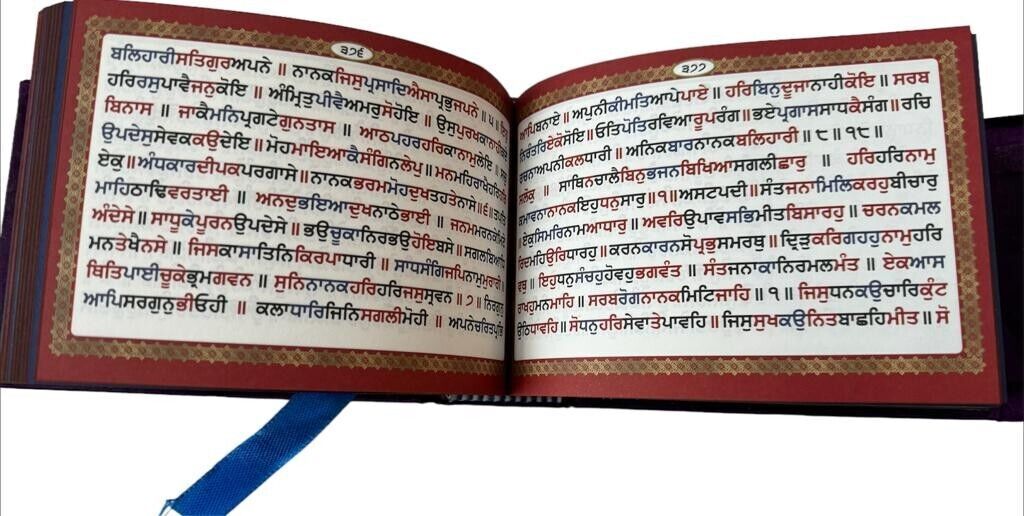 ੩੭੬
ਬਲਿਹਾਰੀਸਤਿਗੁਰਅਪਨੇ ॥ ਨਾਨਕਜਿਸੁਪ੍ਰਸਾਦਿਐਸਾਪ੍ਰਭੁਜਪਨੇ ॥੫॥
ਹਰਿਰਸੁਪਾਵੈਜਨੁਕੋਇ ॥ ਅੰਮ੍ਰਿਤੁਪੀਵੈਅਮਰੁਸੋਹੋਇ ॥ ਉਸੁਪੁਰਖਕਾਨਾਹੀ
ਬਿਨਾਸ ॥ ਜਾਕੈਮਨਿਪ੍ਰਗਟੇਗੁਨਤਾਸ ॥ ਆਠਪਹਰਹਰਿਕਾਨਾਮੁਲੇਇ ॥
ਉਪਦੇਸੁਸੇਵਕਕਉਦੇਇ ॥ ਮੋਹਮਾਇਆਕੈਸੰਗਿਨਲੇਪੁ ॥ ਮਨਮਹਿਰਾਖੈਹਰਿ
ਏਕੁ ॥ ਅੰਧਕਾਰਦੀਪਕਪਰਗਾਸੇ ॥ ਨਾਨਕਭਰਮਮੋਹਦੁਖਤਹਤੇਨਾਸੇ ॥੬॥
ਮਾਹਿਠਾਢਿਵਰਤਾਈ ॥ ਅਨਦੁਭਇਆਦੁਖਨਾਠੇਭਾਈ ॥ ਜਨਮਮਰਨਕੇ
ਅੰਦੇਸੇ ॥ ਸਾਧੂਕੇਪੂਰਨਉਪਦੇਸੇ ॥ ਭਉਚੂਕਾਨਿਰਭਉਹੋਇਬਸੇ ॥ ਸਗਲਬਿਆਧਿ
ਮਨਤੇਖੈਨਸੇ ॥ ਜਿਸਕਾਸਾਤਿਨਿਕਿਰਪਾਧਾਰੀ ॥ ਸਾਧਸੰਗਿਜਪਿਨਾਮੁਮੁਰਾਰੀ ॥
ਥਿਤਿਪਾਈਚੂਕੇਭ੍ਰਮਗਵਨ ॥ ਸੁਨਿਨਾਨਕਹਰਿਹਰਿਜਸੁਸ੍ਰਵਨ ॥੭॥ ਨਿਰਗੁਨੁ
ਆਪਿਸਰਗੁਨੁਭੀਓਹੀ ॥ ਕਲਾਧਾਰਿਜਿਨਿਸਗਲੀਮੋਹੀ ॥ ਅਪਨੇਚਰਿਤਪ੍ਰਭਿ
੩੭੭
ਆਪਿਬਨਾਏ ॥ ਅਪੁਨੀਕੀਮਤਿਆਪੇਪਾਏ ॥ ਹਰਿਬਿਨੁਦੂਜਾਨਾਹੀਕੋਇ ॥ ਸਰਬ
ਨਿਰੰਤਰਿਏਕੋਸੋਇ ॥ ਓਤਿਪੋਤਿਰਵਿਆਰੂਪਰੰਗ ॥ ਭਏਪ੍ਰਗਾਸਸਾਧਕੈਸੰਗ ॥ ਰਚਿ
ਰਚਨਾਅਪਨੀਕਲਧਾਰੀ ॥ ਅਨਿਕਬਾਰਨਾਨਕਬਲਿਹਾਰੀ ॥੮॥੧੮॥
ਸਲੋਕੁ ॥ ਸਾਥਿਨਚਾਲੈਬਿਨੁਭਜਨਬਿਖਿਆਸਗਲੀਛਾਰੁ ॥ ਹਰਿਹਰਿਨਾਮੁ
ਕਮਾਵਨਾਨਾਨਕਇਹੁਧਨੁਸਾਰੁ ॥੧॥ ਅਸਟਪਦੀ ॥ ਸੰਤਜਨਾਮਿਲਿਕਰਹੁਬੀਚਾਰੁ
ਏਕੁਸਿਮਰਿਨਾਮਆਧਾਰੁ ॥ ਅਵਰਿਉਪਾਵਸਭਿਮੀਤਬਿਸਾਰਹੁ ॥ ਚਰਨਕਮਲ
ਰਿਦਮਹਿਉਰਿਧਾਰਹੁ ॥ ਕਰਨਕਾਰਨਸੋਪ੍ਰਭੁਸਮਰਥੁ ॥ ਦ੍ਰਿੜੁਕਰਿਗਹਹੁਨਾਮੁਹਰਿ
ਵਥੁ ॥ ਇਹੁਧਨੁਸੰਚਹੁਹੋਵਹੁਭਗਵੰਤ ॥ ਸੰਤਜਨਾਕਾਨਿਰਮਲਮੰਤ ॥ ਏਕਆਸ
ਰਾਖਹੁਮਨਮਾਹਿ ॥ ਸਰਬਰੋਗਨਾਨਕਮਿਟਿਜਾਹਿ ॥੧॥ ਜਿਸੁਧਨਕਉਚਾਰਿਕੁੰਟ
ਉਠਿਧਾਵਹਿ ॥ ਸੋਧਨੁਹਰਿਸੇਵਾਤੇਪਾਵਹਿ ॥ ਜਿਸੁਸੁਖਕਉਨਿਤਬਾਛਹਿਮੀਤ ॥ ਸੋ